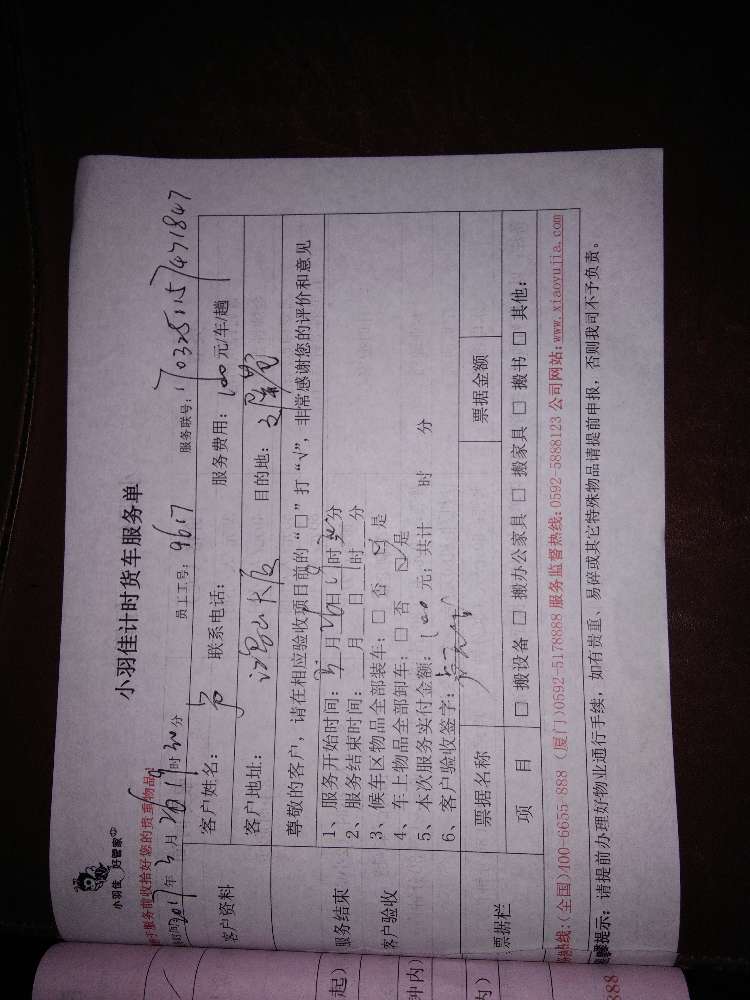 小羽佳 好管家
小羽佳计时货车服务单
服务前收拾好您的贵重物品
2017年3月26日19时30分 员工工号: 9617 服务联号: 1703251157471847
客户资料
客户姓名: 联系电话: 服务费用: 100元/车/趟
客户地址: 大厦 目的地:
尊敬的客户，请在相应验收项目前的“□”打“√”，非常感谢您的评价和意见
服务结束
客户验收
1、服务开始时间: 3月26日19时30分
2、服务结束时间: 月 日 时 分
3、候车区物品全部装车: □ 否 ☑ 是
4、车上物品全部卸车: □ 否 ☑ 是
5、本次服务实付金额: 100 元; 共计 时 分
6、客户验收签字:
票据栏
票据名称 票据金额
项 目 □ 搬设备 □ 搬办公家具 □ 搬家具 □ 搬书 □ 其他:
热线:(全国)400-6655-888 (厦门)0592-5178888 服务监督热线:0592-5888123 公司网站:www.xiaoyujia.com
温馨提示: 请提前办理好物业通行手续，如有贵重、易碎或其它特殊物品请提前申报，否则我司不予负责。
起)
中内)
内)
888